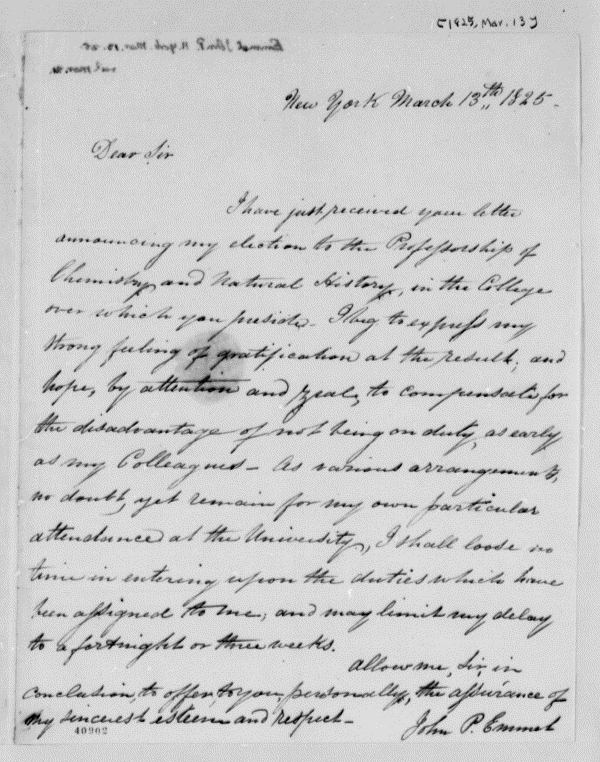 [1825, Mar. 13]
New York March 13th,, 1825.
Dear Sir
I have just received your letter
announcing my election to the Professorship of
Chemistry, and Natural History, in the College
over which you preside. I beg to express my
strong feeling of gratification at the result; and
hope, by attention and zeal, to compensate for
the disadvantage of not being on duty, as early
as my Colleagues – As various arrangements,
no doubt, yet remain for my own particular
attendance at the University, I shall loose no
time in entering upon the duties which have
been assigned to me; and may limit my delay
to a fortnight or three weeks.
Allow me, Sir, in
conclusion, to offer, to you, personally, the assurance of
my sincerest esteem and respect –
John P. Emmet
40902